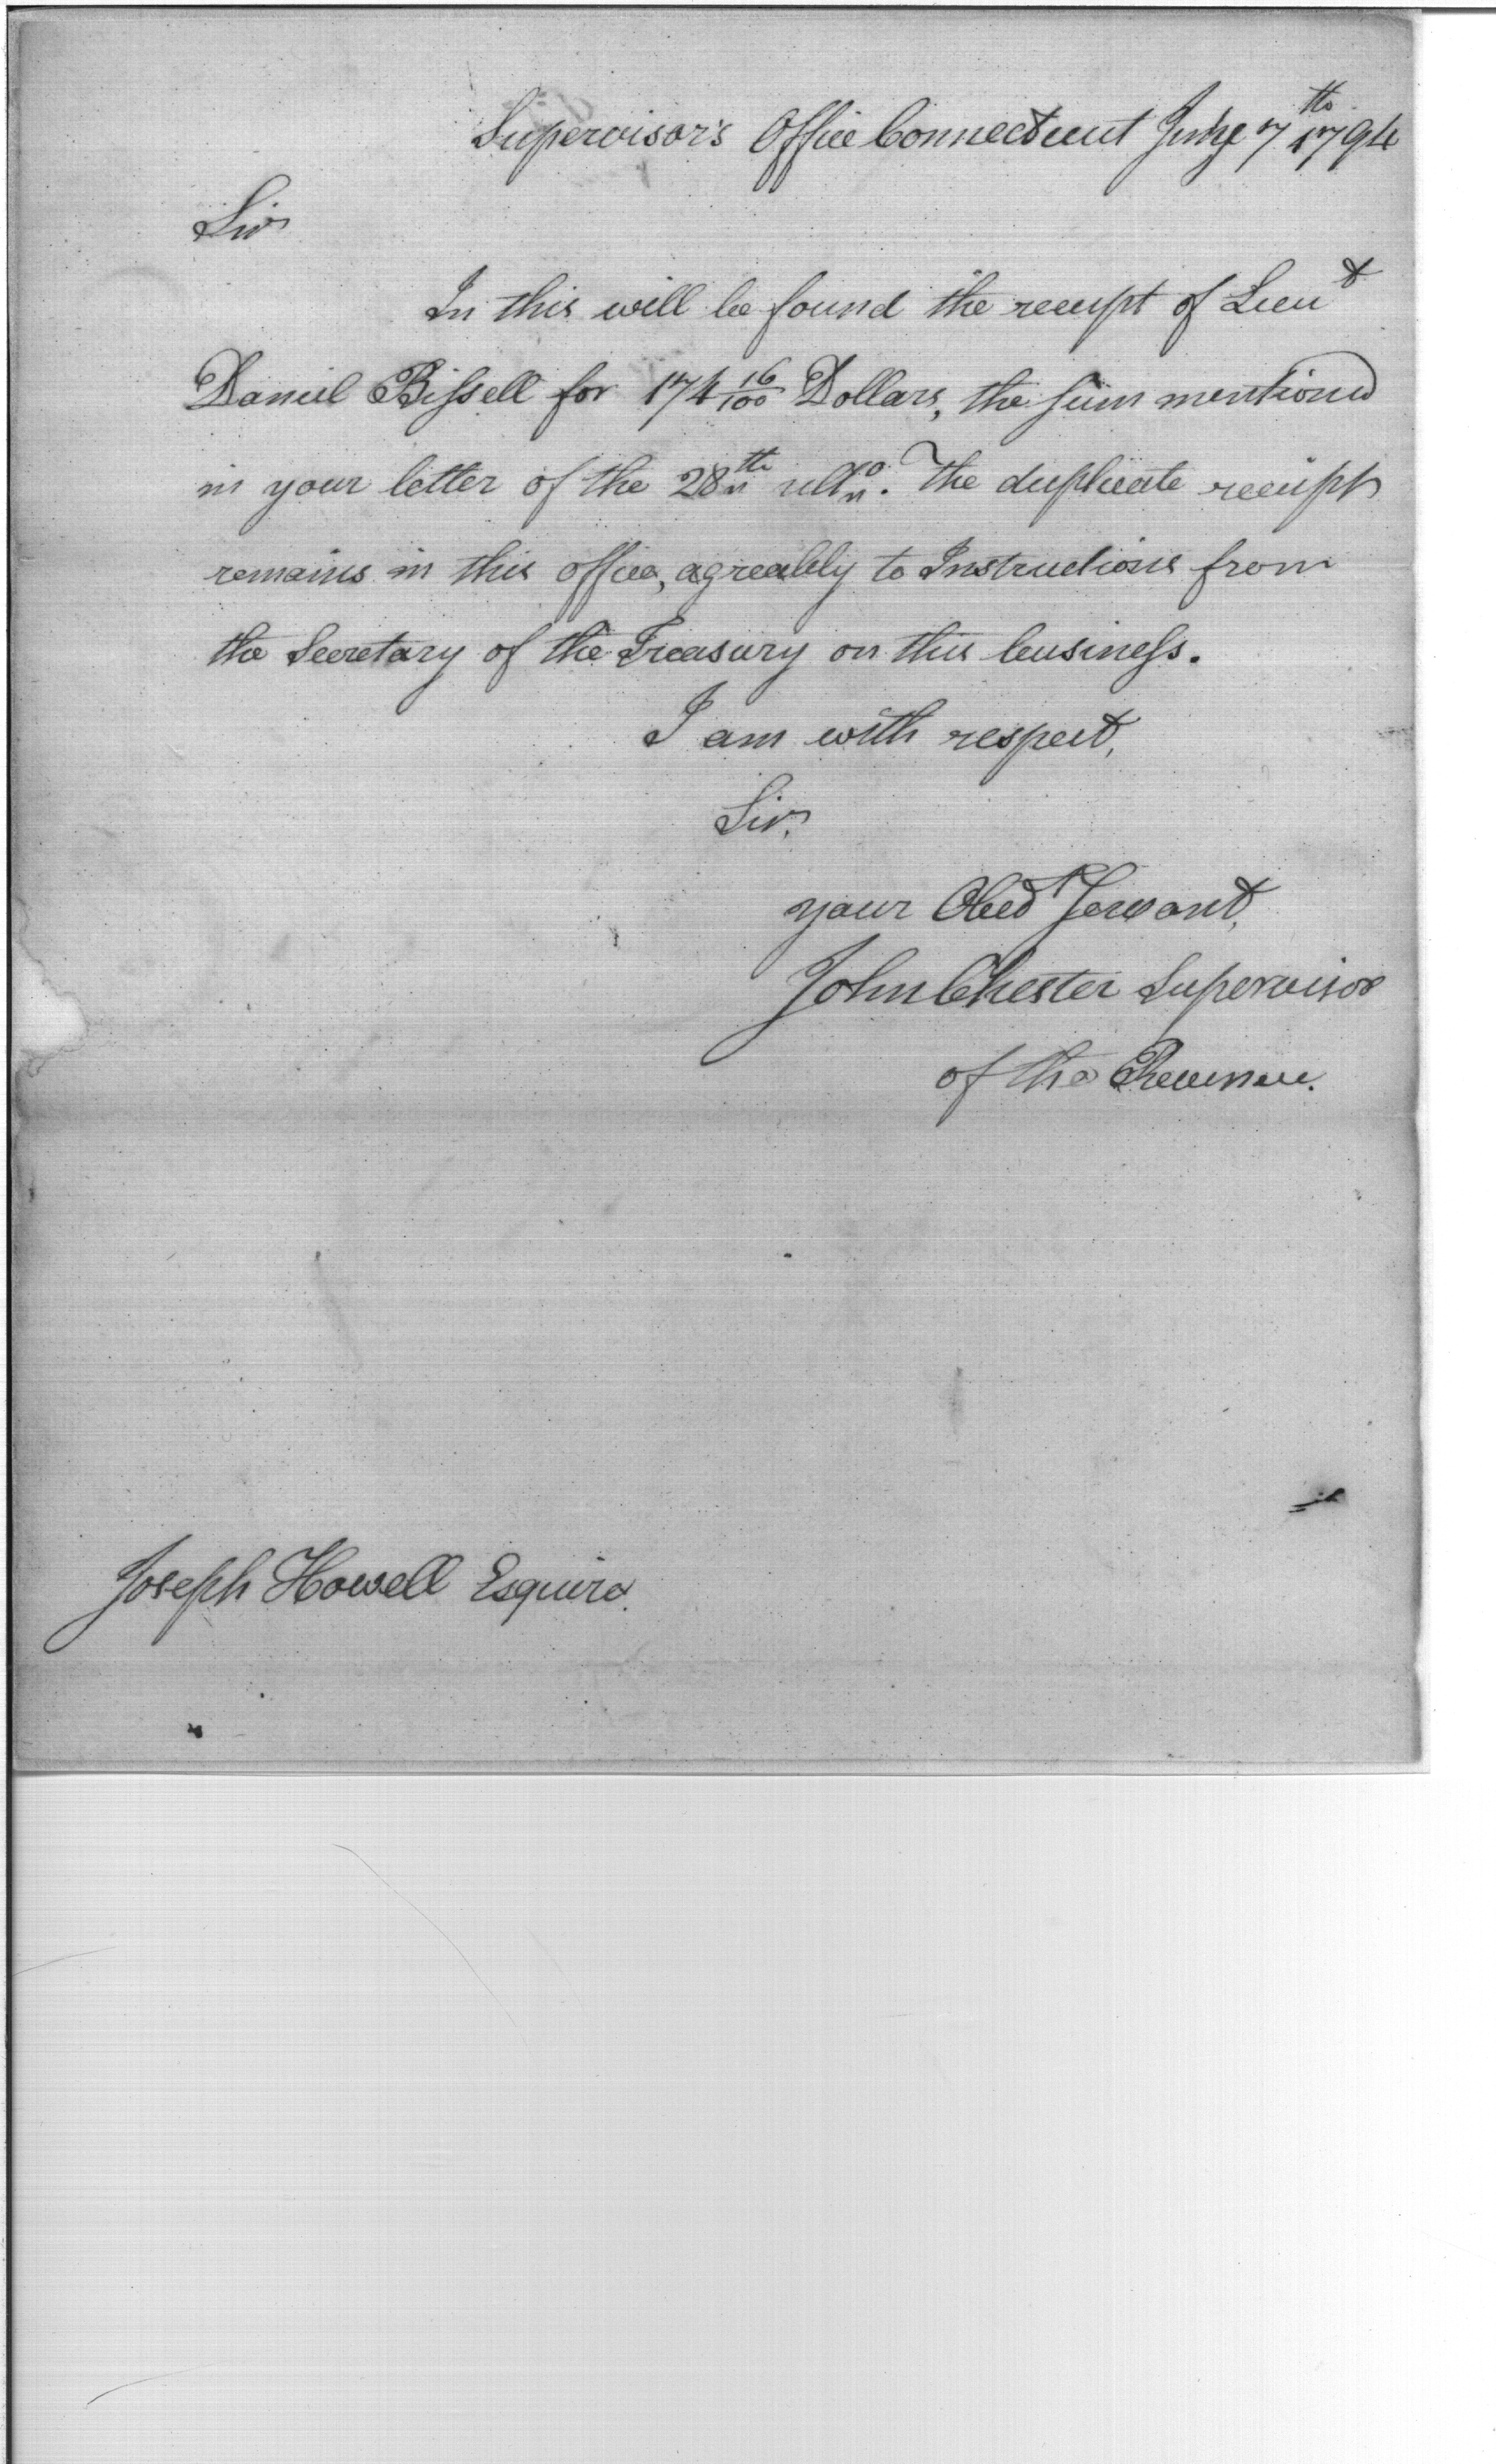 Supervisor's Office Connecticut July 7th 1794
Sir
In this will be found the receipt of Lieut
Daniel Bissell for 174 16/100 Dollars, the sum mentioned
in your letter of the 28th ulto. The duplicate receipt
remains in this office, agreably to Instructions from
the Secretary of the Treasury on this business.
I am with respect,
Sir,
your Obedt Servant,
John Chester Supervisor
of the Revenue.
Joseph Howell Esquire.